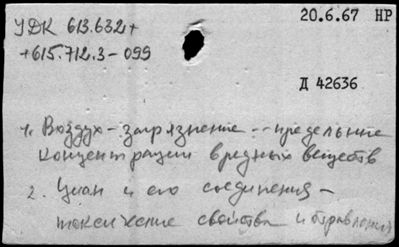 УДК 613.632+
20.6.67 НР
+615.712.3-099
Д 42636
1. Воздух - загрязнение - предельные
концентрации вредных веществ
2. Циан и его соединения -
токсические свойства и отравления